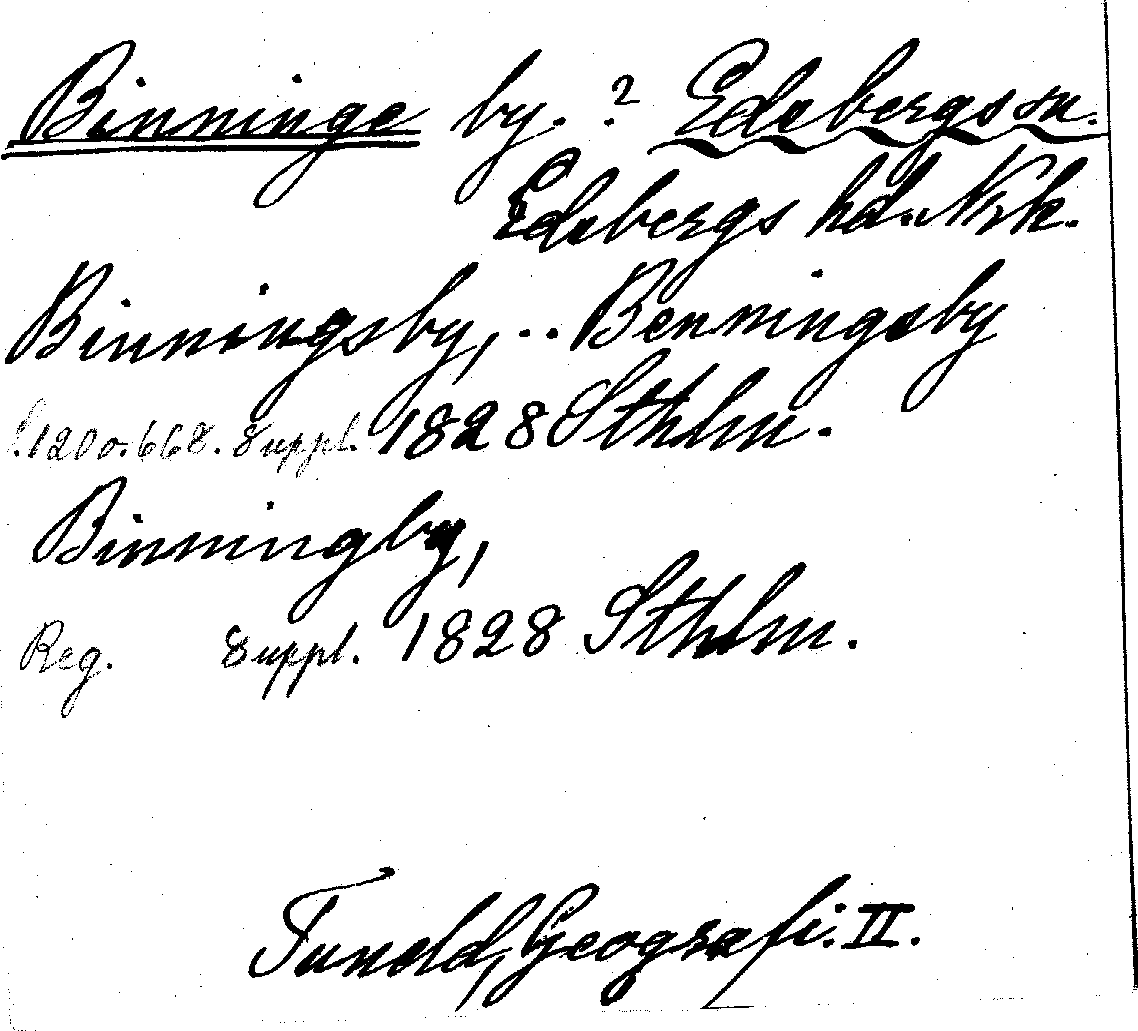 Binninge by. ? Edsbergs sn.
Edsbergs hd. Nrk.
Binningsby, .. Benningsby
S. 1200. 668. Suppl. 1828 Sthlm.
Binningby,
Reg. Suppl. 1828 Sthlm.
Tuneld, Geografi. II.